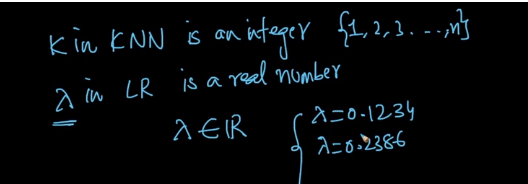 K in KNN is an integer {1, 2, 3 . . . , n}
λ in LR is a real number
λ ∈ ℝ { λ = 0.1234
λ = 0.2386